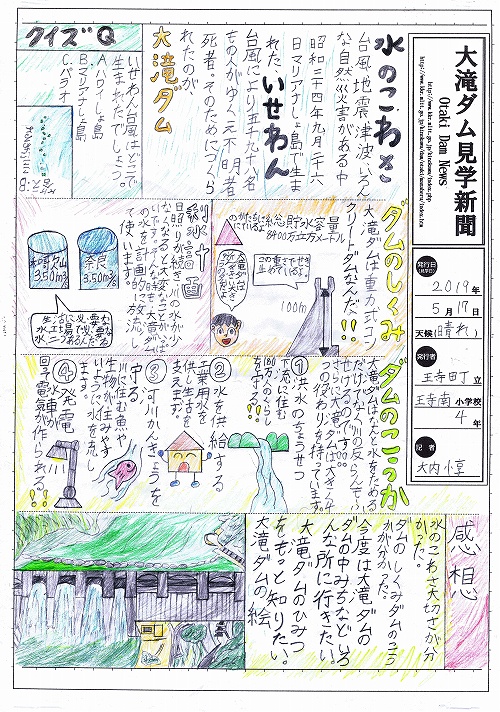 大滝ダム見学新聞
Otaki Dam News
発行日
(見学日)
2019年
5月17日
天候(晴れ)
発行者
王寺田丁立
王寺南小学校
4年
記者
水のこわさ
台風、地震、津波、いろん
な自然災害がある中
昭和三十四年九月二十六
日マリアナしょ島で生ま
れた、いせわん
台風により五千九十八名
もの人がゆくえ不明者
死者。そのためにつくら
れたのが、
大滝ダム
クイズQ
いせわん台風はどこで
生まれたでしょう。
A.ハワイしょ島
B.マリアナしょ島
C.パラオ
ダムのしくみ
大滝ダムは重力式コン
クリートダムなんだ!!
総貯水容量
8400万立方メートル
100m
利水計画
日照りが続き、川の水が少
なくなると大変なことがいっぱ
の水を計画的に放流し
て使います。
奈良
3.50m³
和歌山
3.50m³
ダムのこうか
大滝ダムはなんと水をためる
だけでなく、川の反らんをふ
せげるのです。
つの役わりを持っています。
①洪水のちょうせつ
下流に住む
を守る。
②水を供給する
工業用水を
供し生活を
守る
③河川かんきょうを
川に住む魚や
生物が住みやす
いように水を流し
ます。
④発電
水車が
回って電気が作られる!!
感想
水のこわさ大切さが分
かった。
ダムのしくみダムのこう
かが分かった。
今度は大滝ダムの
ダムの中みちなどいろ
んな所に行きたい。
大滝ダムのひみつ
をもっと知りたい。
大滝ダムの絵